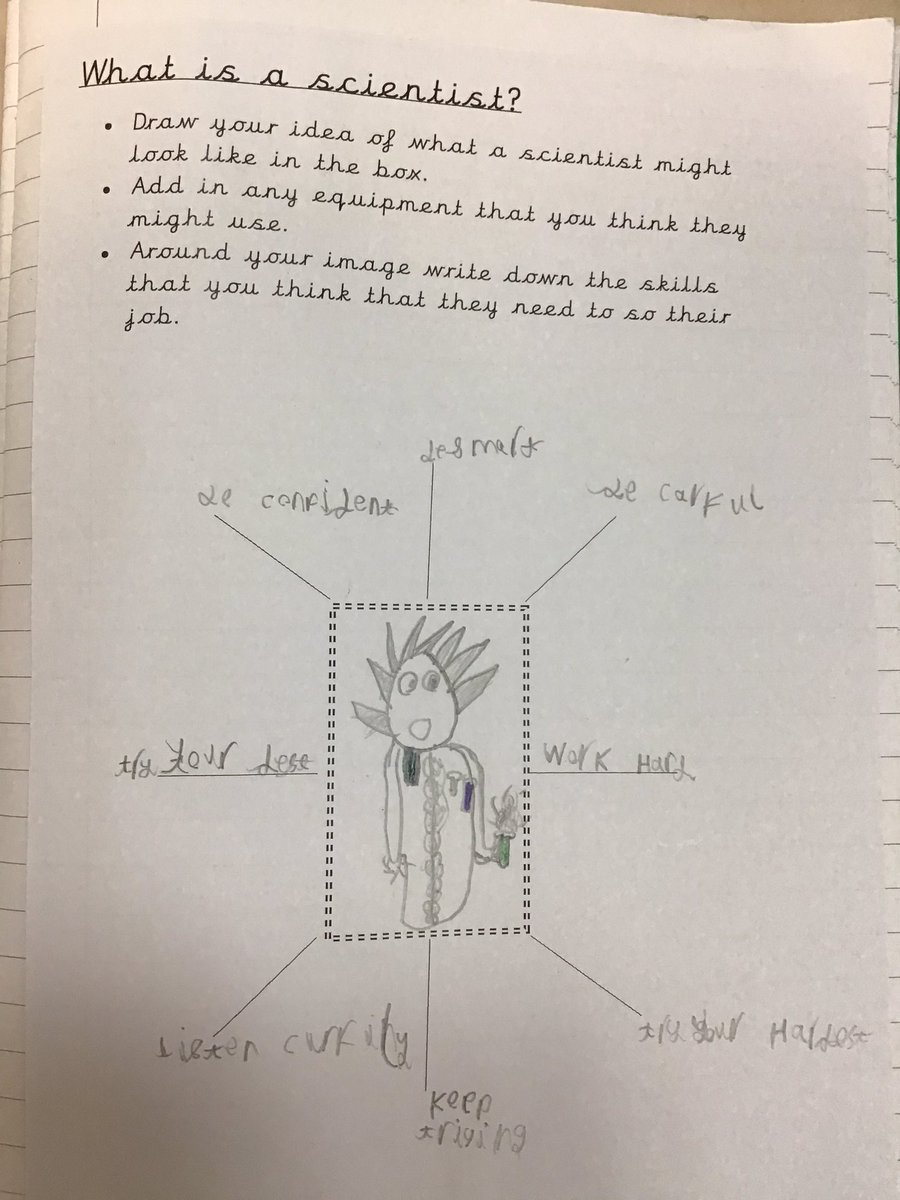 What is a scientist?
• Draw your idea of what a scientist might
look like in the box.
• Add in any equipment that you think they
might use.
• Around your image write down the skills
that you think that they need to so their
job.
be smart
be confident
be carful
try your best
work Hard
Listen curfily
try your Hardest
keep
triying